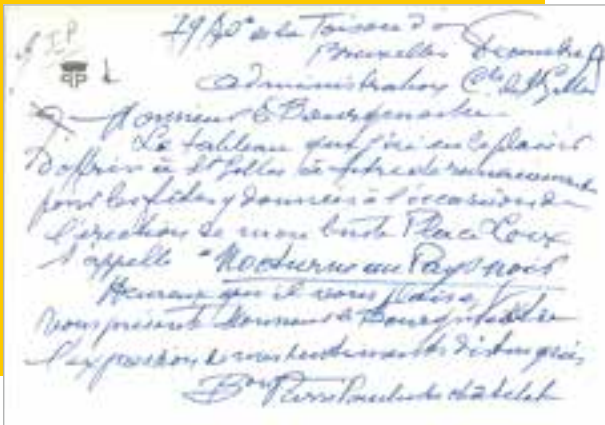 19 Av de la Toison d'or
Bruxelles Décembre
Administration Cle de St Gilles
Monsieur le Bourgmestre
Le tableau que j'ai eu le plaisir
d'offrir à St Gilles à titre de remerciement
pour les fêtes y données à l'occasion de
l'érection de mon buste Place Loix
s'appelle "Nocturne au Pays noir
Heureux qu'il vous plaise,
Vous présente Monsieur le Bourgmestre
l'expression de mes sentiments distingués
Bon Pierre Paulus de Châtelet